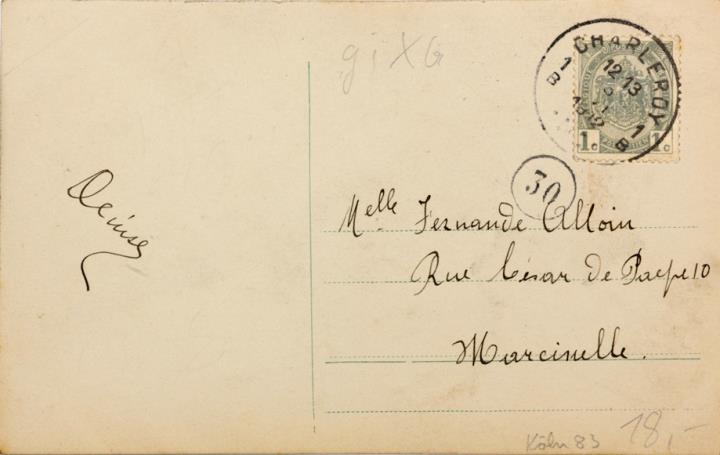 g i X G
CHARLEROY
1 B
12-13
1912
1 B
1c 1c
30
Denise
Melle Fernande Alloin
Rue César de Paepe 10
Marcinelle.
Köln 83
18,-